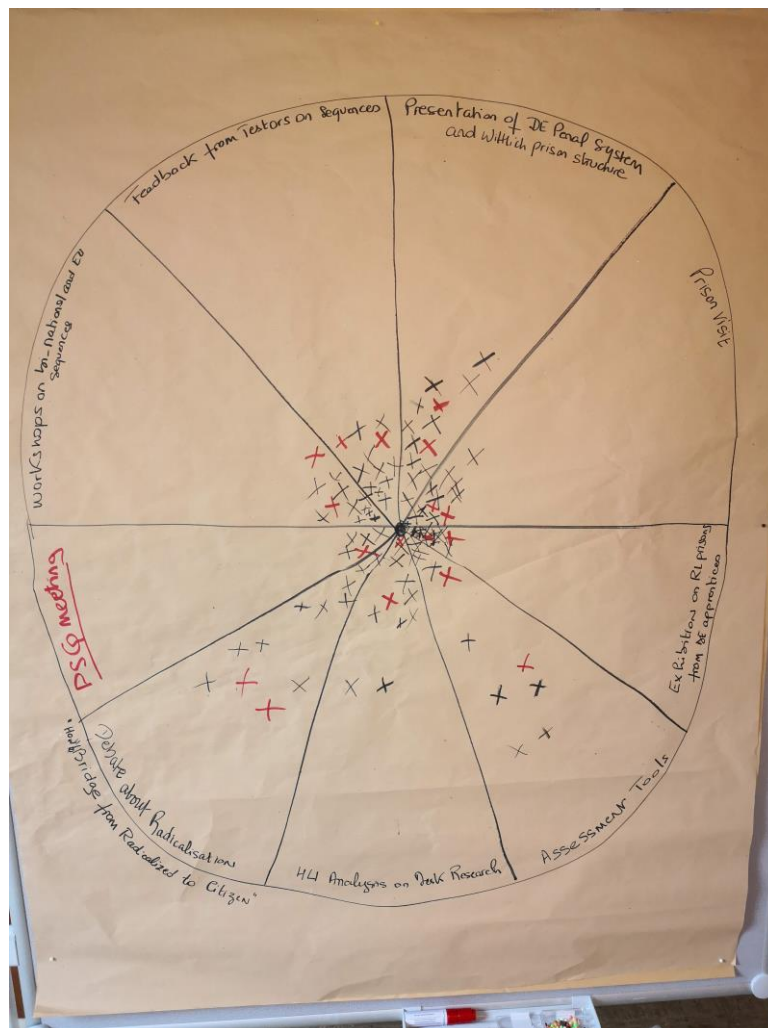 Feedback from Testors on Sequences
Presentation of DE Penal System
and Wittlich prison structure
Prison visit
Exhibition on RL prisons
from DE apprentices
Assessment Tools
4U Analysis on Desk Research
Debate about Radicalisation
Bridge from Radicalized to Citizen"
PSG meeting
Workshops on bi-national and EU
sequences